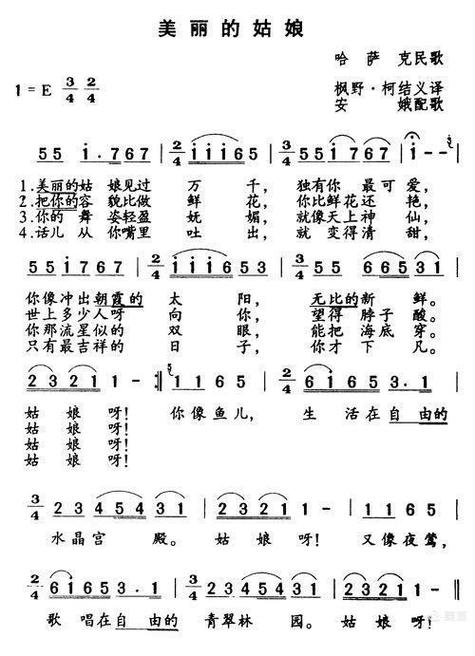 美丽的姑娘
哈萨克民歌
1=E 3/4 2/4
枫野·柯结义译
安娥配歌
5 5 i . 7 6 7 | 2/4 i i i i 6 5 | i 7 6 7 | i - - |
1.美丽的姑娘见过万千，独有你最可爱，
2.把你的容貌比做鲜花，你比鲜花还艳，
3.你的舞姿轻盈妩媚，就像天上神仙，
4.话儿从你嘴里吐出，就变得清甜，
5 5 i 7 6 7 | 2/4 i i i i 6 5 3 | 5 5 6 6 5 3 |
你像冲出朝霞的太阳，无比的新鲜。
世上多少人呀向你，望得脖子酸。
你那流星似的双眼，能把海底穿。
只有最吉祥的日子，你才下凡。
2 3 2 1 1 - :‖ 1 1 6 5 | 2/4 6 1 6 5 3 . 1 |
姑娘呀！你像鱼儿，生活在自由的
姑娘呀！
姑娘呀！
姑娘呀！
3/4 2 3 4 5 4 3 1 | 2 3 2 1 1 - | 1 1 6 5 |
水晶宫殿。姑娘呀！又像夜莺，
2/4 6 1 6 5 3 . 1 | 3/4 2 3 4 5 4 3 1 | 2 3 2 1 1 - ‖
歌唱在自由的青翠林园。姑娘呀！